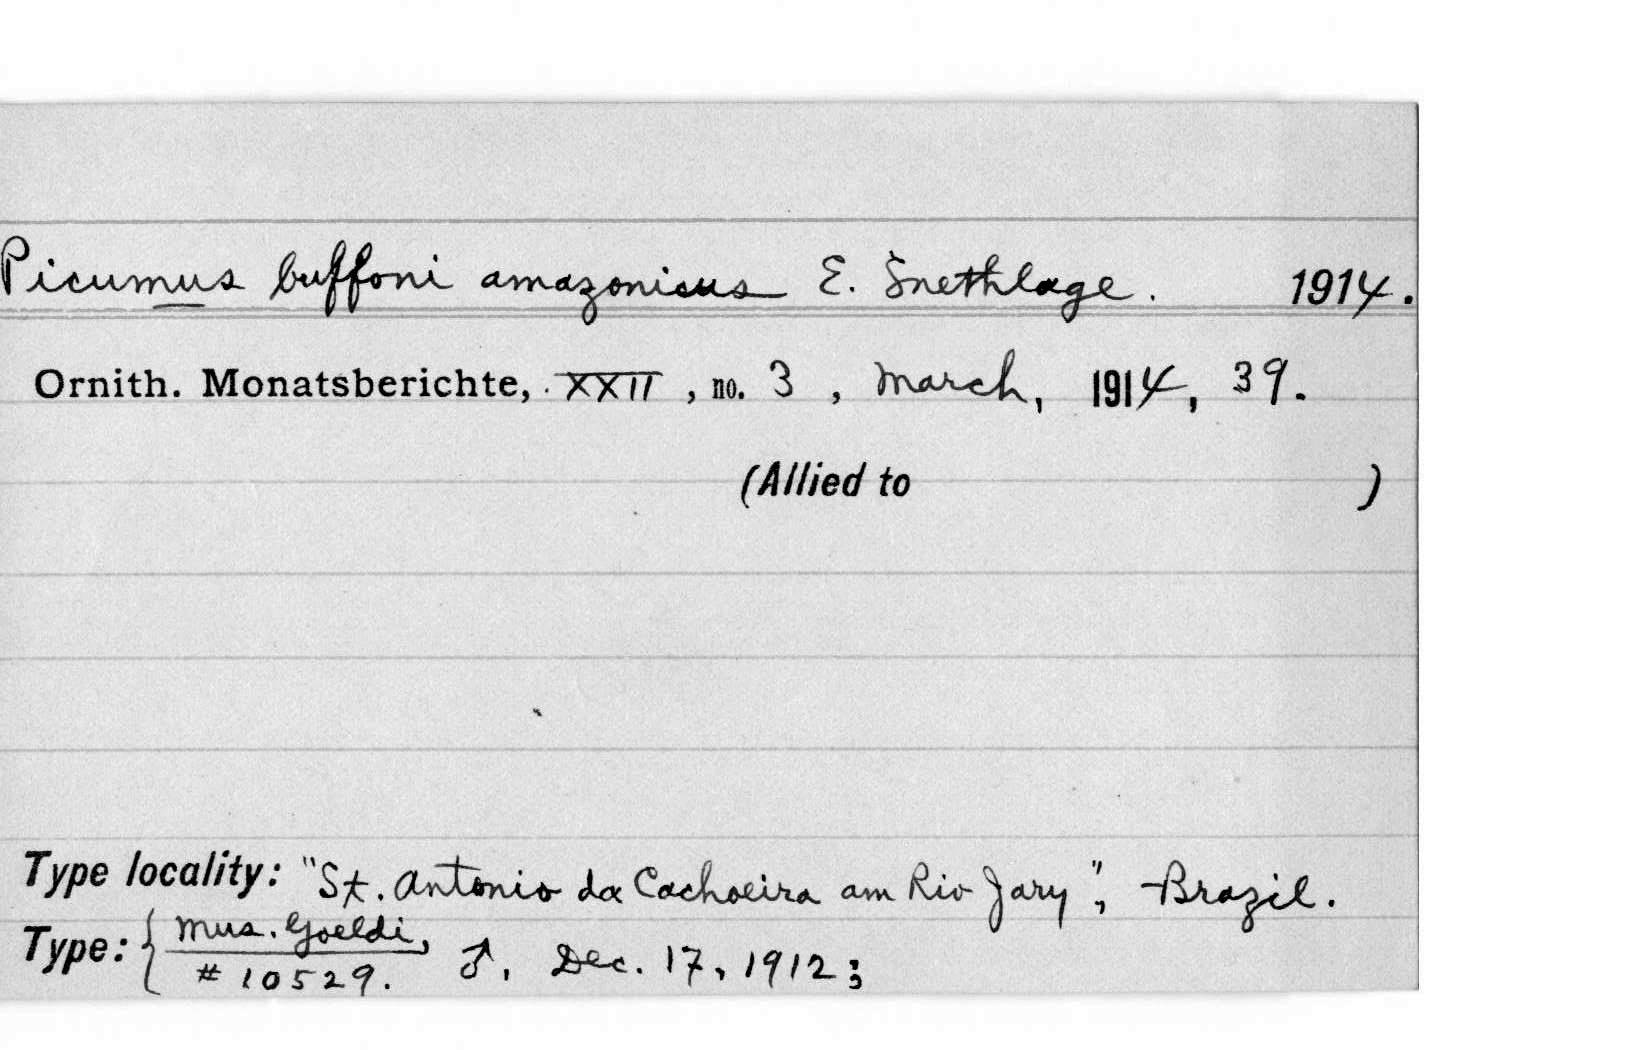 Picumus buffoni amazonicus E. Snethlage. 1914.
Ornith. Monatsberichte, XXII, no. 3, March, 1914, 39.
(Allied to )
Type locality: "St. Antonio da Cachoeira am Rio Jary", Brazil.
Type: { Mus. Goeldi, ♂, Dec. 17, 1912;
# 10529.